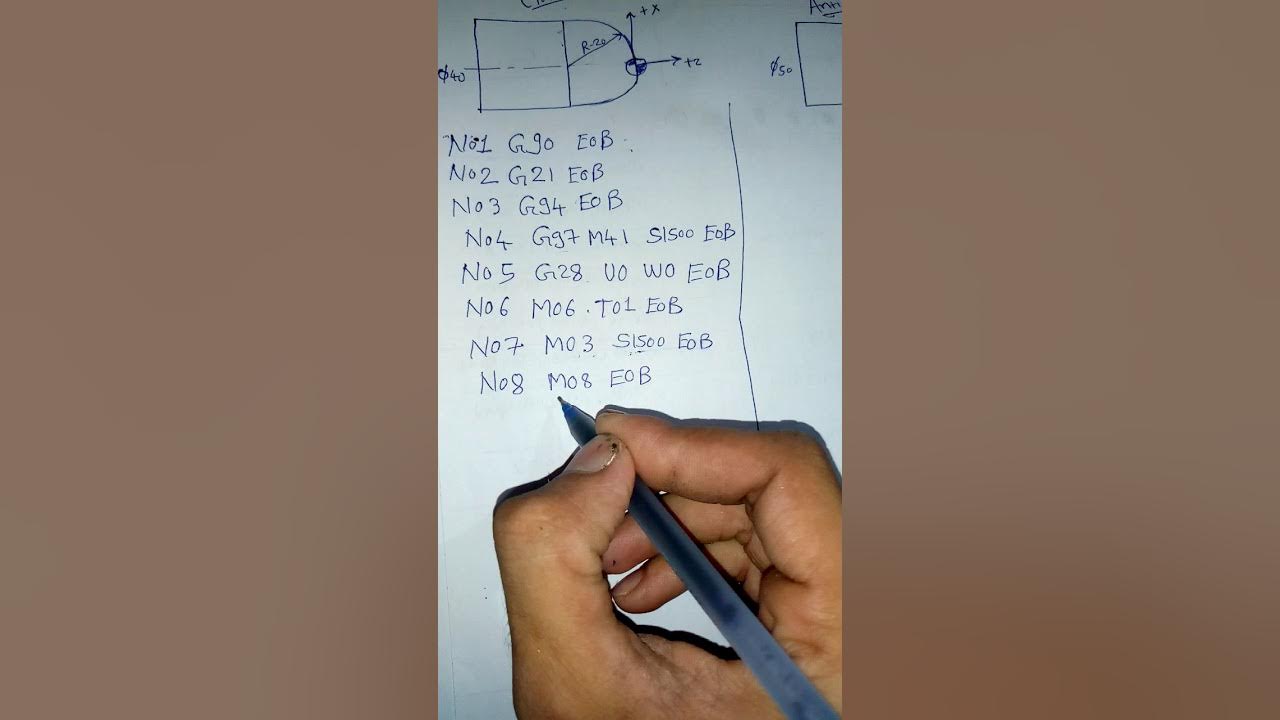 +X
Anti
R-20
+Z
φ40
φ50
N01 G90 EOB
N02 G21 EOB
N03 G94 EOB
N04 G97 M41 S1500 EOB
N05 G28 U0 W0 EOB
N06 M06 T01 EOB
N07 M03 S1500 EOB
N08 M08 EOB